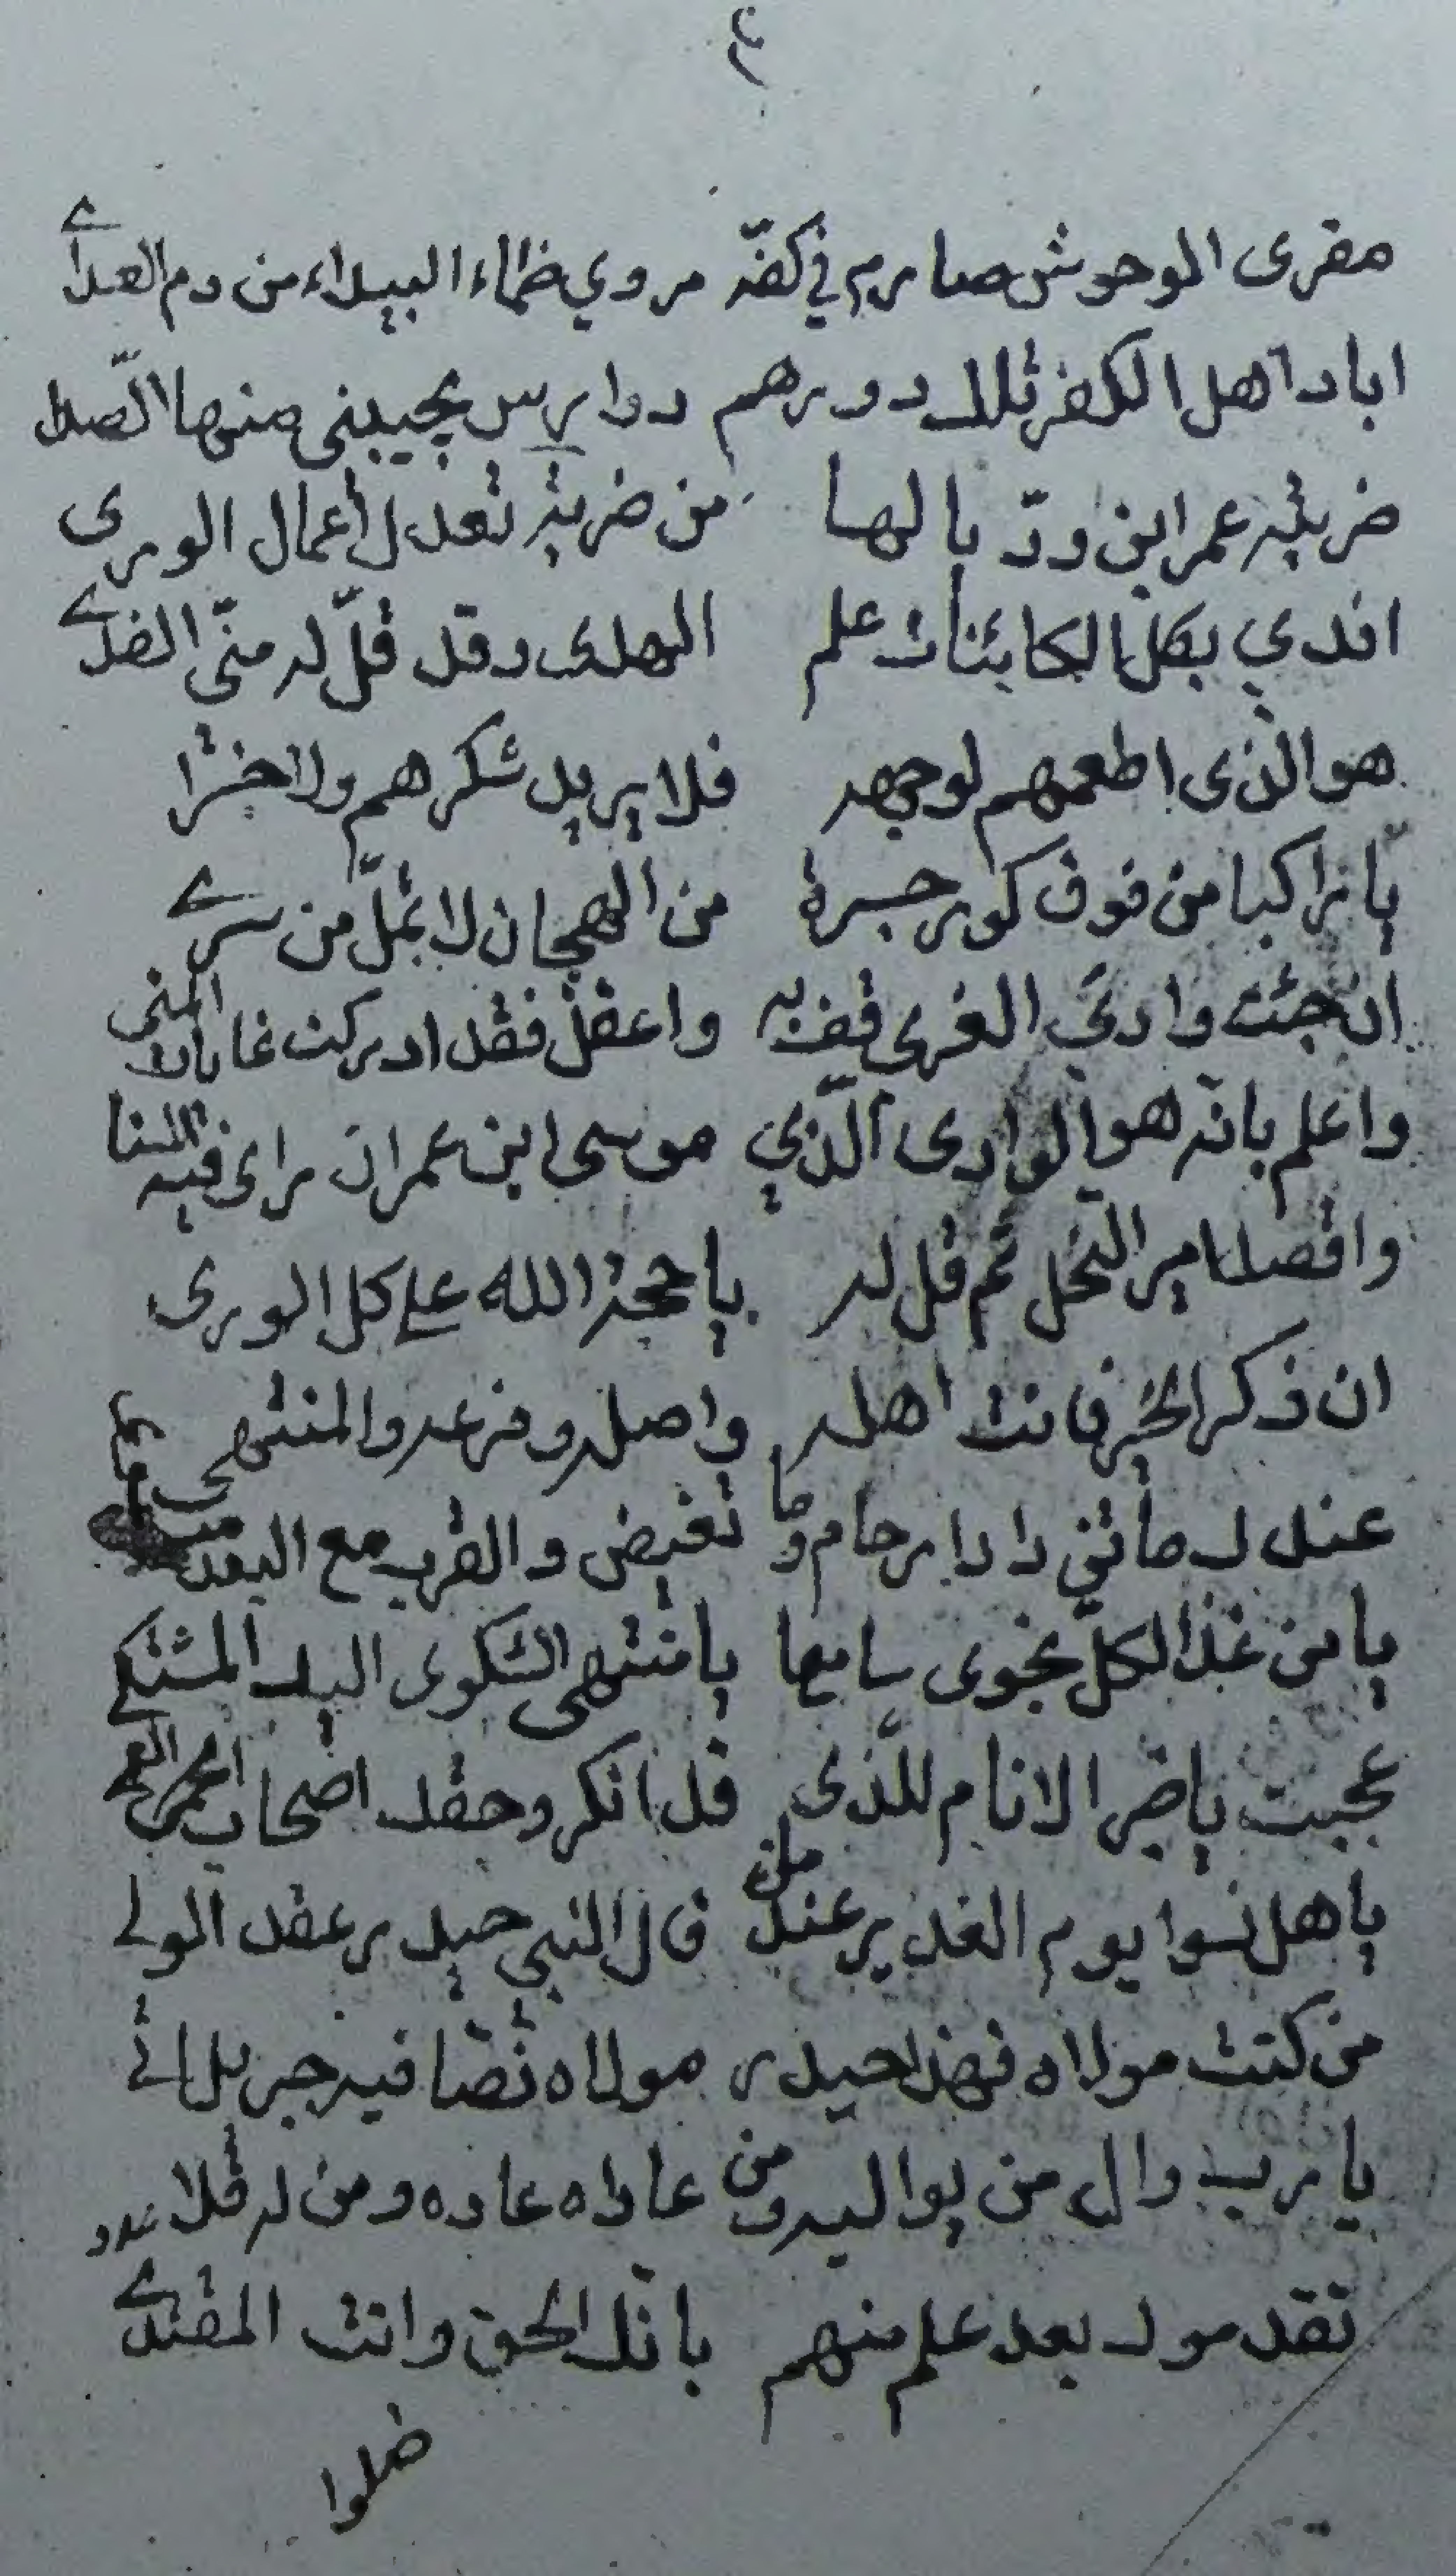 ٤
مقرى الوحوش صارم في كفّه مروي ظماء البيداء من دم العدا
اباد اهل الكفر تلك دورهم دوارس يجيبني منها الصدا
ضربته عمر ابن ودّ يالها من ضربة تعدل اعمال الورى
افدي بكل الكائنات علم الهدى وقد قلّ له منّي الفدا
هو الذى اطعمهم لوجهه فلا يريد شكرهم ولا
يا راكبا من فوق كور جسرة من الهجان لا تملّ من سرى
ان جئت وادي الغرى قف به واعقل فقد ادركت غايات المنى
واعلم بانّه هو الوادى الّذي موسى ابن عمران راى فيه السنا
واقصد امير النحل ثم قل له يا حجة الله على كل الورى
ان ذكر الخير فانت اهله واصله وفرعه والمنتهى
عندك ما تزدادا رحام وما تغيض والقرب مع البعد
يا من غدا لكلّ نجوى سامعا يا منتهى الشكوى اليك المشتكى
عجبت يا خير الانام للذى قد انكروحقك اصحاب
يا هل نسوا يوم الغدير عندما قال النبي حيدر عقد الولى
من كنت مولاه فهذا حيدر مولاه نصّا فيه جبريل اتى
يا رب وال من يواليه ومن عاداه عاده ومن له قلا
تقدموك بعد علم منهم بانّك الحق وانت المقتدى
ضلوا